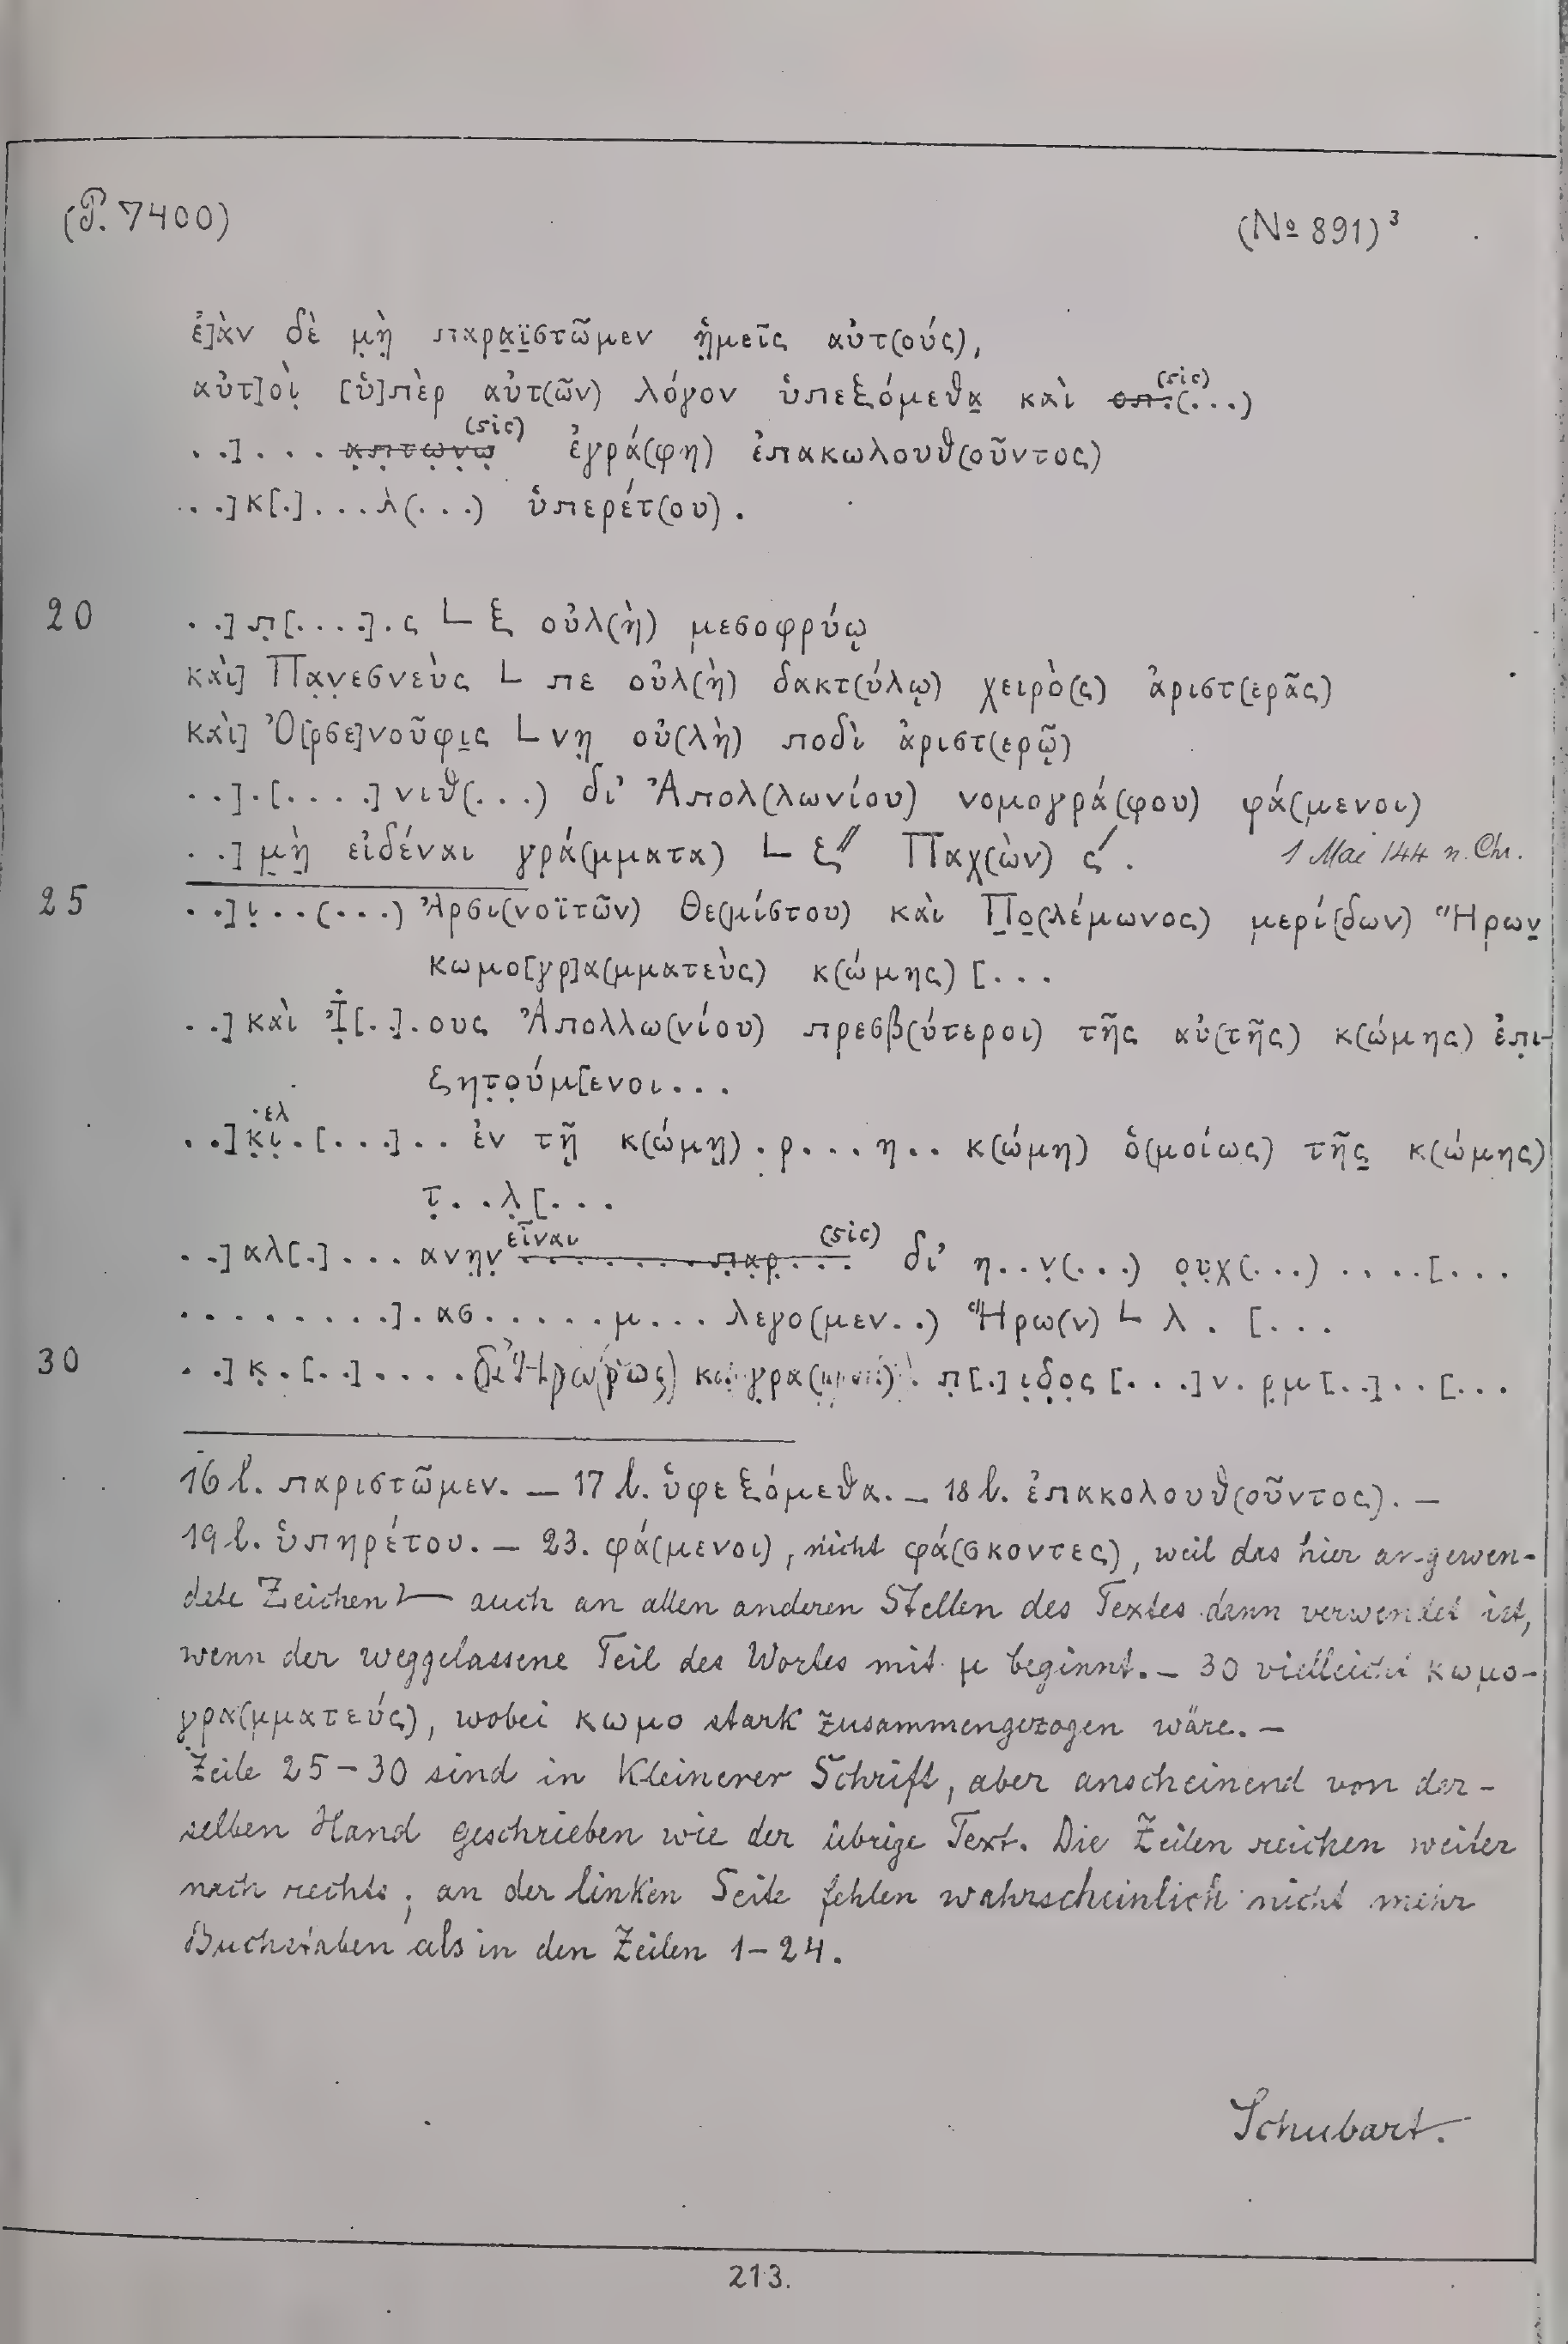 (P. 7400) (№ 891)³
ἐ]ὰν δὲ μ̣ὴ̣ παρα̣ϊ̣στῶμεν ἡ̣μεῖς αὐτ(ούς),
αὐτ]οὶ̣ [ὑ]πὲρ αὐτ(ῶν) λόγον ὑπεξόμεθα̣ καὶ οπ.(...) (sic)
..]... α̣π̣τω̣ν̣ω̣ (sic) ἐγρά(φη) ἐπακωλουθ(οῦντος)
..]κ[.]...λ(...) ὑπερέτ(ου).
20 ..]π̣[....].ς └ ξ οὐλ(ὴ) μεσοφρύῳ
καὶ] Πα̣ν̣εσνεὺς └ πε οὐλ(ὴ) δακτ(ύλῳ) χειρὸ(ς) ἀριστ(ερᾶς)
καὶ] Ὀ[ρσε]νοῦφι̣ς └ νη̣ οὐ(λὴ) ποδὶ ἀριστ(ερῷ)
..].[....]νιθ(...) δι’ Ἀπολ(λωνίου) νομογρά(φου) φά(μενοι)
..] μ̣ὴ̣ εἰδέναι γρά(μματα) └ ξ// Παχ(ὼν) ς/. 1 Mai 144 n. Chr.
25 ..]ι̣..(...) Ἀρσι(νοϊτῶν) Θε(μίστου) καὶ Π̣ο̣(λέμωνος) μερί(δων) Ἥρων̣
κωμο[γρ]α(μματεὺς) κ(ώμης) [...
..] καὶ Ἰ̣[..].ους Ἀπολλω(νίου) πρεσβ(ύτεροι) τῆς αὐ(τῆς) κ(ώμης) ἐπ̣ι-
ζητ̣ο̣ύμ[ενοι...
.ελ
..]κ̣ι̣.[...].. ἐν τῇ κ(ώμῃ).ρ...η.. κ(ώμη) ὁ(μοίως) τῆς̣ κ(ώμης)
τ̣..λ̣[...
..]αλ[.]... ανη̣ν̣ εἶναι ........π̣α̣ρ̣... (sic) δι’ η..ν̣(...) ο̣υ̣χ(...) ....[...
.........].ασ......μ... λεγο(μεν..) Ἥρω(ν) └ λ.[...
30 ..]κ̣.[..].... π̣[.]ι̣δ̣ο̣ς[...]ν.ρ̣μ[..]..[...
16 l. παριστῶμεν. — 17 l. ὑφεξόμεθα. — 18 l. ἐπακολουθ(οῦντος). —
19 l. ὑπηρέτου. — 23. φά(μενοι), nicht φά(σκοντες), weil das hier angewen-
dete Zeichen auch an allen anderen Stellen des Textes dann verwendet ist,
wenn der weggelassene Teil des Wortes mit μ beginnt. — 30 vielleicht κωμο-
γρα(μματεύς), wobei κωμο stark zusammengezogen wäre. —
Zeile 25–30 sind in kleinerer Schrift, aber anscheinend von der-
selben Hand geschrieben wie der übrige Text. Die Zeilen reichen weiter
nach rechts; an der linken Seite fehlen wahrscheinlich nicht mehr
Buchstaben als in den Zeilen 1–24.
Schubart.
213.